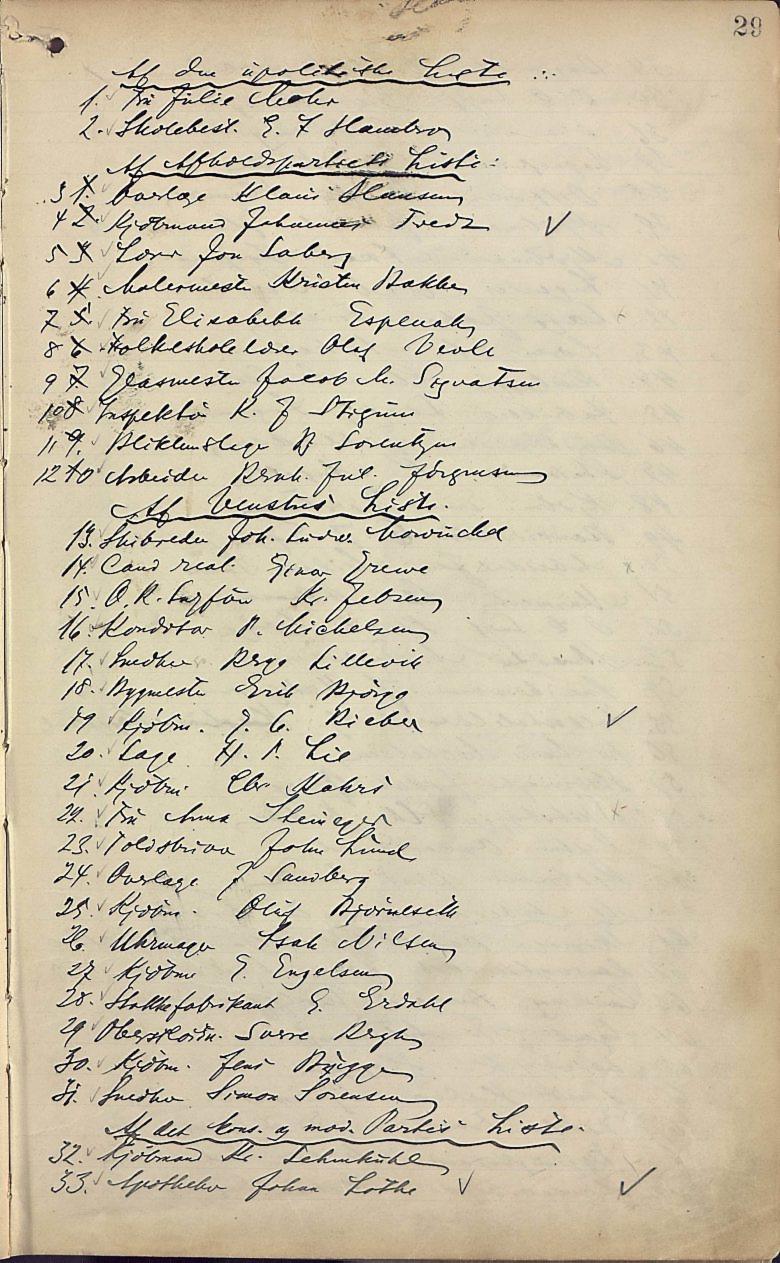 29
Af den upolitiske Liste
1. Fru Julie Mohr
2. Skolebest. E. F Hambro
Af Afholdspartiets Liste:
3 1. Overlæge Klaus Hansen
4 2. Kjøbmand Johannes Tredz
5 3 Lærer Jon Saberg
6 4. Malermester Kristen Bakke
7 5. Fru Elisabeth Espenak
8 6 Folkeskolelærer Olaf Vevle
9 7 Glasmester Jacob M. Sigvatsen
10 8 Inspektør K. J Stigum
11 9. Blikkenslager B Lorentzen
12 10 Arbeider Bernh. Jul. Jörgensen
Af Venstres Liste.
13. Skibsreder Joh. Ludw. Mowinckel
14. Cand real. Einar Grewe
15. O.R. Sagfører Kr. Jebsen
16. Konditor P. Michelsen
17. Snedker Berge Lillevik
18. Bygmester Erik Bjørge
19 Kjøbm. G. C. Rieber
20. Læge H. P. Lie
21. Kjøbm. Chr. Mohrs
22. Fru Anna Steineger
23. Toldskriver John Lund
24. Overlæge Sandberg
25. Kjøbm. Oluf Bjørneseth
26. Uhrmager Isak Nilsen
27 Kjøbm E. Engelsen
28. Stokkefabrikant E. Erdahl
29 Oberstløitn. Sverre Bergh
30. Kjøbm. Jens Bugge
31. Snedker Simon Sorensen
Af det kons. og mod. Partis Liste.
32. Kjøbmand Kr. Lehmkuhl
33. Apotheker Johan Lothe